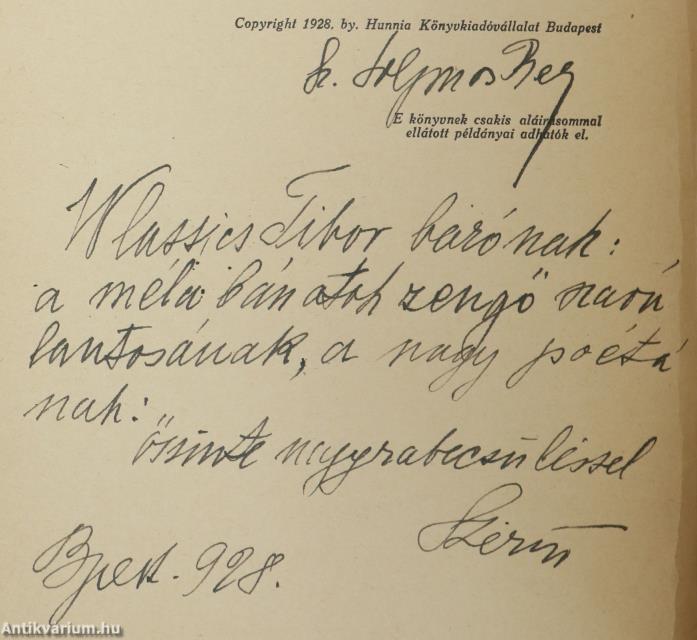 Copyright 1928. by. Hunnia Könyvkiadóvállalat Budapest
Sz. Solymos Bea
E könyvnek csakis aláirásommal
ellátott példányai adhatók el.
Wlassics Tibor bárónak:
a méla bánatok zengő szavú
lantosának, a nagy poétá
nak:
őszinte nagyrabecsüléssel
Szerző
Bpest. 928.
Antikvarium.hu